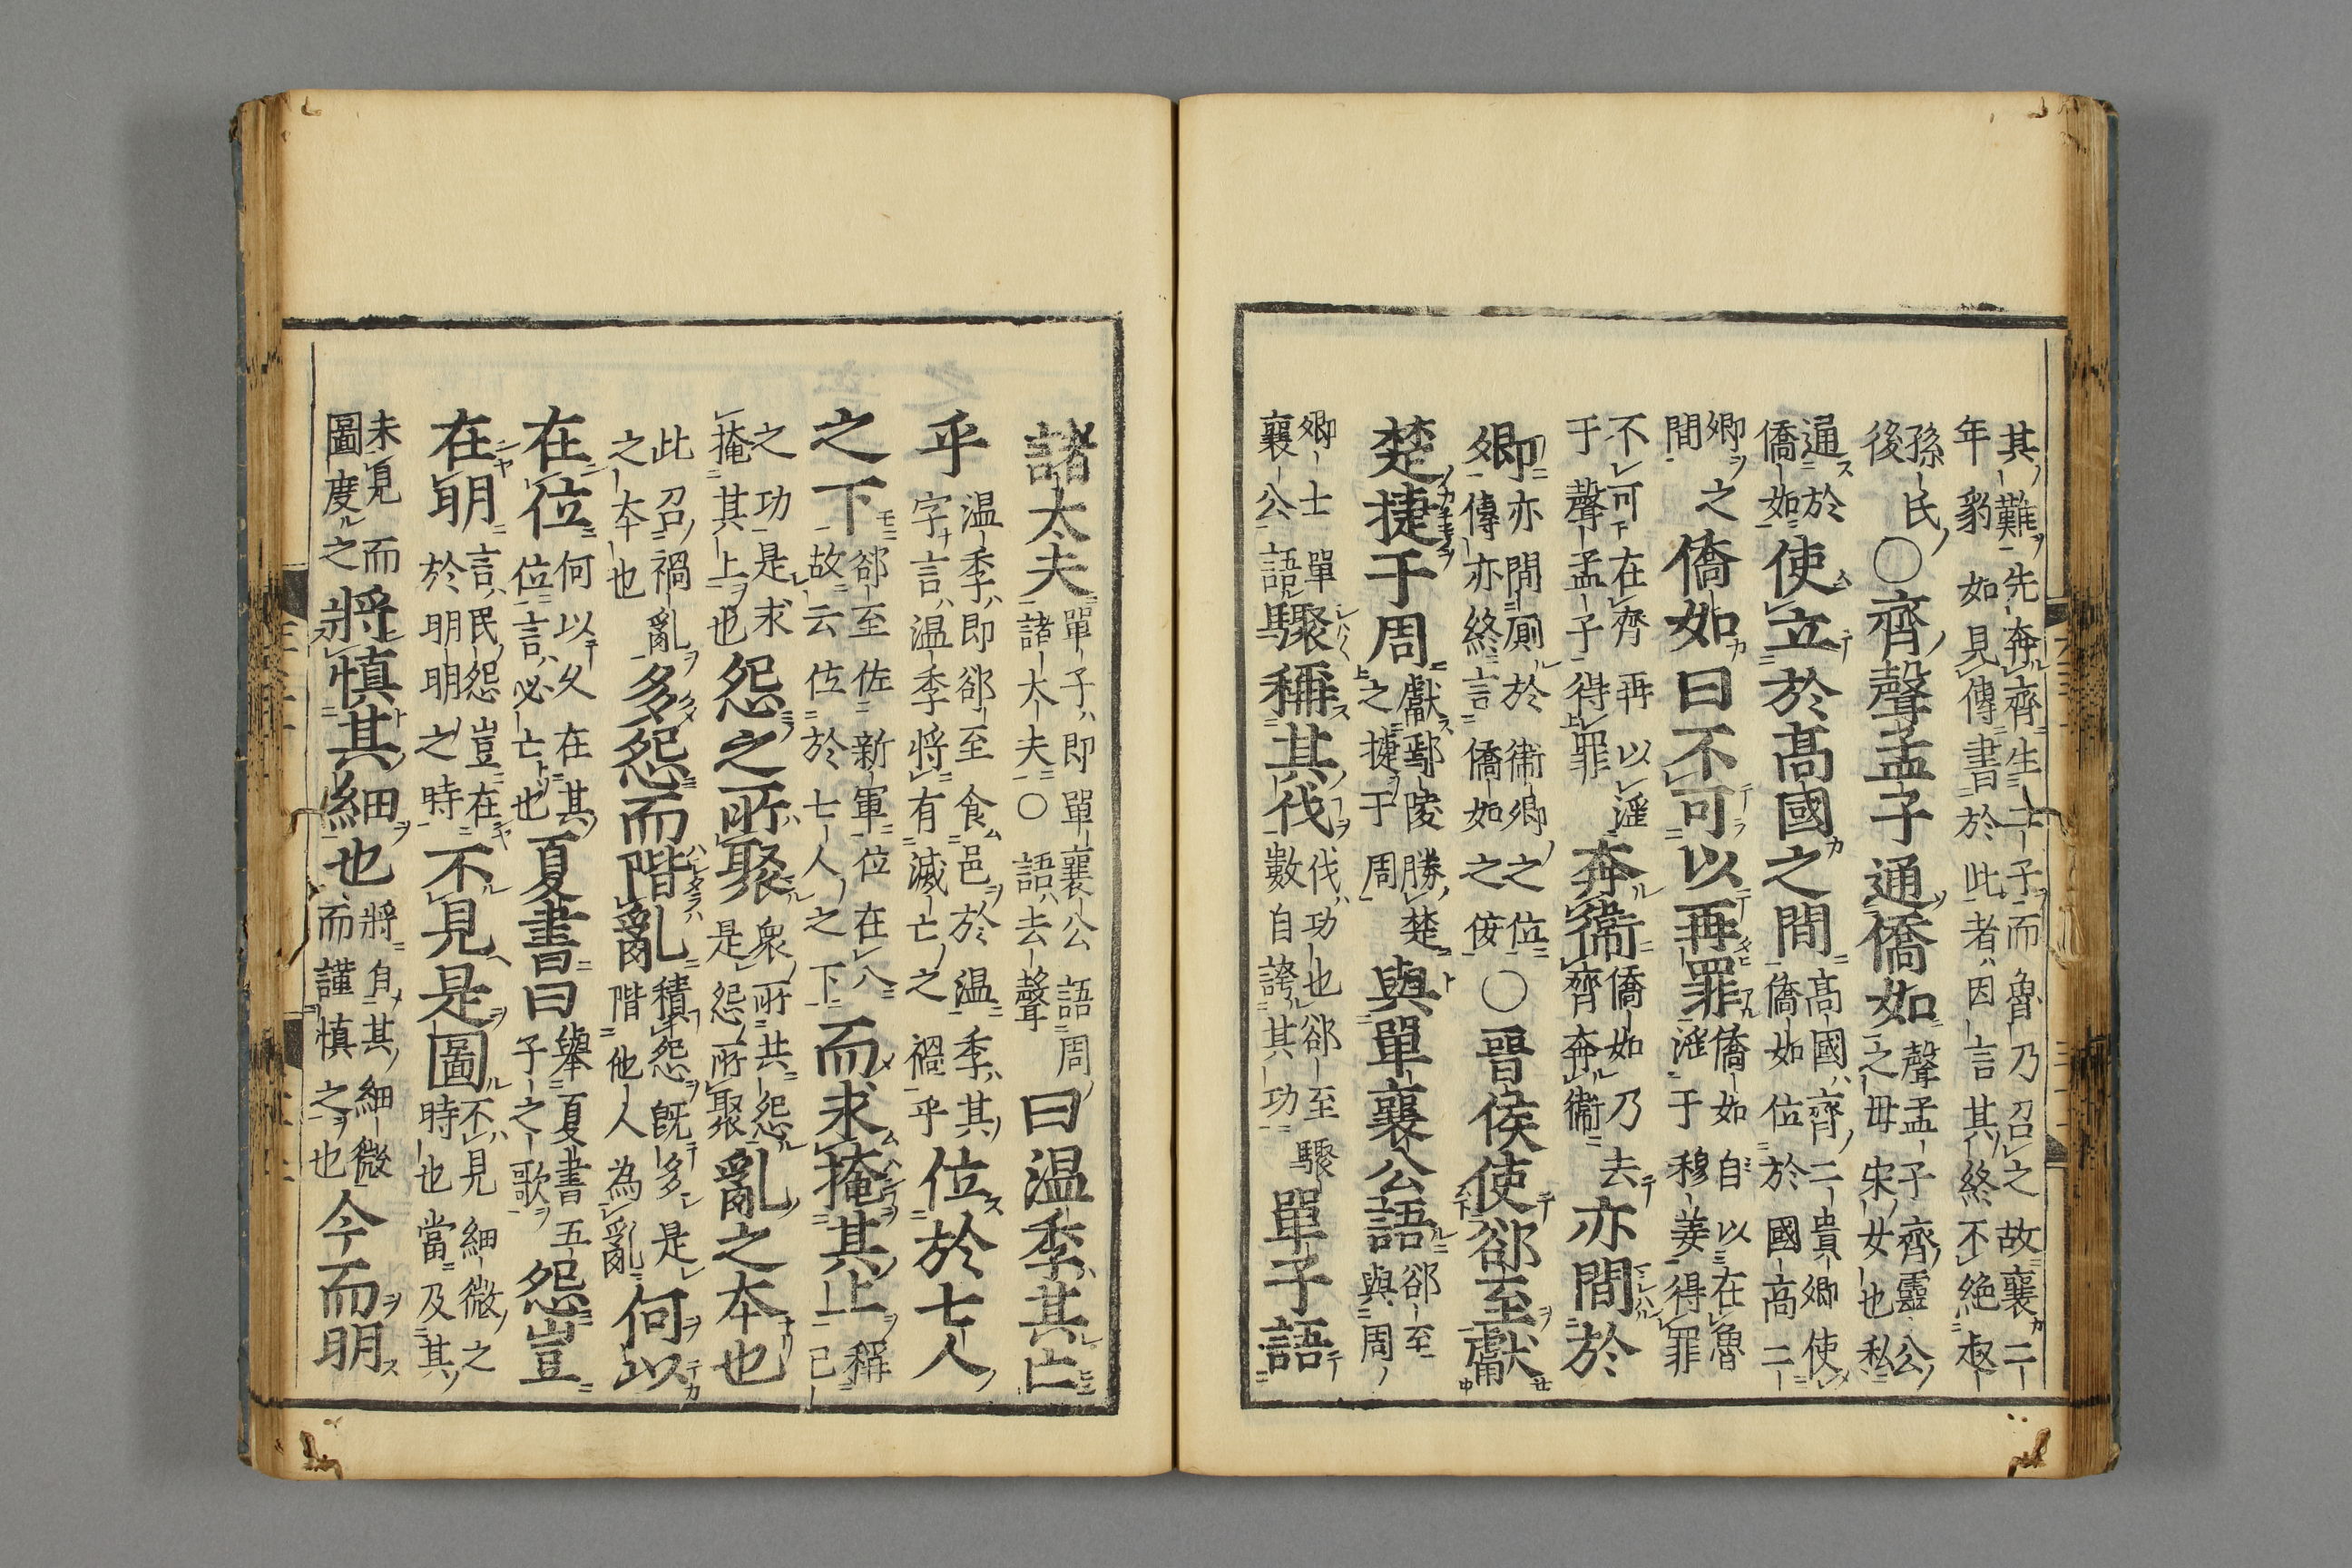 其難先奔齊生二子而魯乃召之故襄二年豹如見傳書於此者因言其終不絕叔
孫氏後○齊聲孟子通僑如聲孟子齊靈公之母宋女也私
通於僑如使立於髙國之間髙國齊二貴卿使僑如位於國高二
卿之間僑如曰不可以再罪僑如自以在魯淫于穆姜得罪
不可在齊再以淫于聲孟子得罪奔衞僑如乃去齊奔衞亦間於
卿亦間厠於衞卿之位傳亦終言僑如之佞○晉侯使郤至獻
楚捷于周獻鄢陵勝楚之捷于周與單襄公語郤至與周
卿士單襄公語驟稱其伐伐功也郤至驟數自誇其功單子語
諸大夫單子即單襄公語周諸大夫○語去聲曰温季其亡
乎温季即郤至食邑於温季其字言温季將有滅亡之禍乎位於七人
之下郤至佐新軍位在八故云位於七人之下而求掩其上稱己
之功是求掩其上也怨之所聚衆所共怨是怨所聚亂之本也
此召禍亂之本也多怨而階亂積怨既多是階他人為亂何以
在位何以久在其位言必亡也夏書曰舉夏書五子之歌怨豈
在明言民怨豈在於明明之時不見是圖不見細微之時也當及其
未見而圖度之將慎其細也將自其細微而謹慎之也今而明